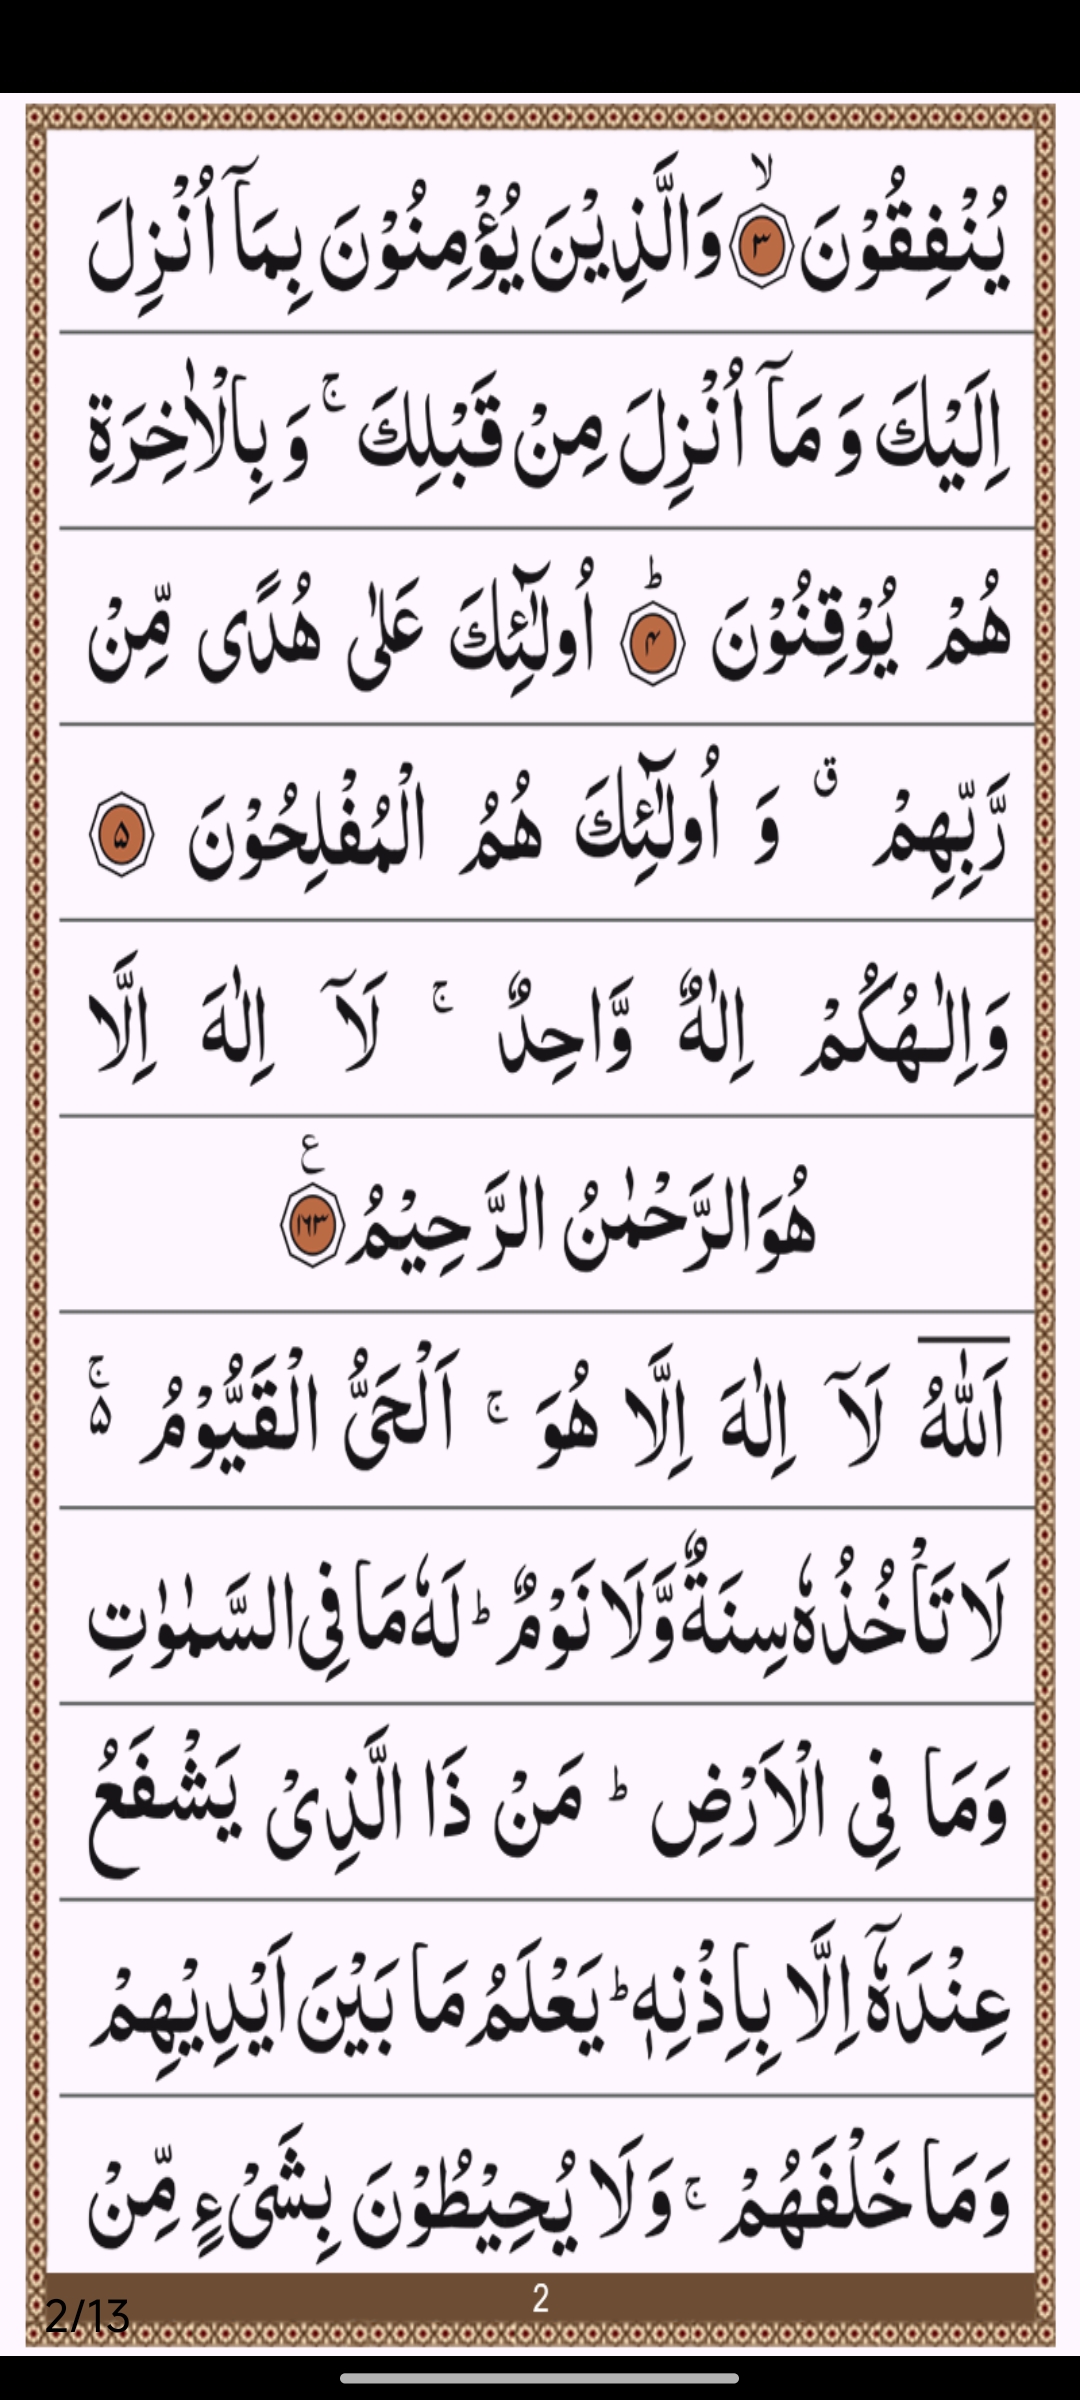 يُنْفِقُوْنَ ۙ﴿۳﴾ وَالَّذِيْنَ يُؤْمِنُوْنَ بِمَاۤ اُنْزِلَ
اِلَيْكَ وَ مَاۤ اُنْزِلَ مِنْ قَبْلِكَ ۚ وَ بِالْاٰخِرَةِ
هُمْ يُوْقِنُوْنَ ؕ﴿۴﴾ اُولٰٓئِكَ عَلٰى هُدًى مِّنْ
رَّبِّهِمْ ۗ وَ اُولٰٓئِكَ هُمُ الْمُفْلِحُوْنَ ﴿۵﴾
وَاِلٰـهُكُمْ اِلٰهٌ وَّاحِدٌ ۚ لَاۤ اِلٰهَ اِلَّا
هُوَالرَّحْمٰنُ الرَّحِيْمُ ﴿۱۶۳﴾ ع
اَللّٰهُ لَاۤ اِلٰهَ اِلَّا هُوَ ۚ اَلْحَىُّ الْقَيُّوْمُ ۵ۚ
لَا تَاْخُذُهٗ سِنَةٌ وَّلَا نَوْمٌ ؕ لَهٗ مَا فِى السَّمٰوٰتِ
وَمَا فِى الْاَرْضِ ؕ مَنْ ذَا الَّذِىْ يَشْفَعُ
عِنْدَهٗۤ اِلَّا بِاِذْنِهٖ ؕ يَعْلَمُ مَا بَيْنَ اَيْدِيْهِمْ
وَمَا خَلْفَهُمْ ۚ وَلَا يُحِيْطُوْنَ بِشَىْءٍ مِّنْ
2
2/13